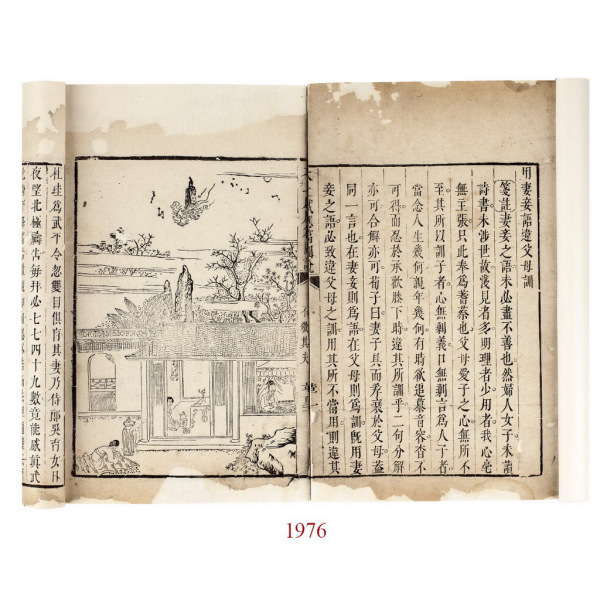 用妻妾語違父母訓
箋註妻妾之語未必盡不善也然婦人女子未讀
詩書未涉世故淺見者多明理者少用者我心毫
無主張只此奉爲蓍蔡也父母愛子之心無所不
至其所以訓子者心無剩義口無剩言爲人子者
當念人生幾何親年幾何有時欲追慕音容杳不
可得而忍於承歡膝下時違其所訓乎二句分解
亦可合解亦可荀子曰妻子具而孝衰於父母蓋
同一言也在妻妾則爲語在父母則爲訓既用妻
妾之語必致違父母之訓用其所不當用則違其
珪爲武平令忽雙目俱盲其妻乃侍郎吳育女日
夜望北極禱告每拜必七七四十九數竟能感眞武
1976